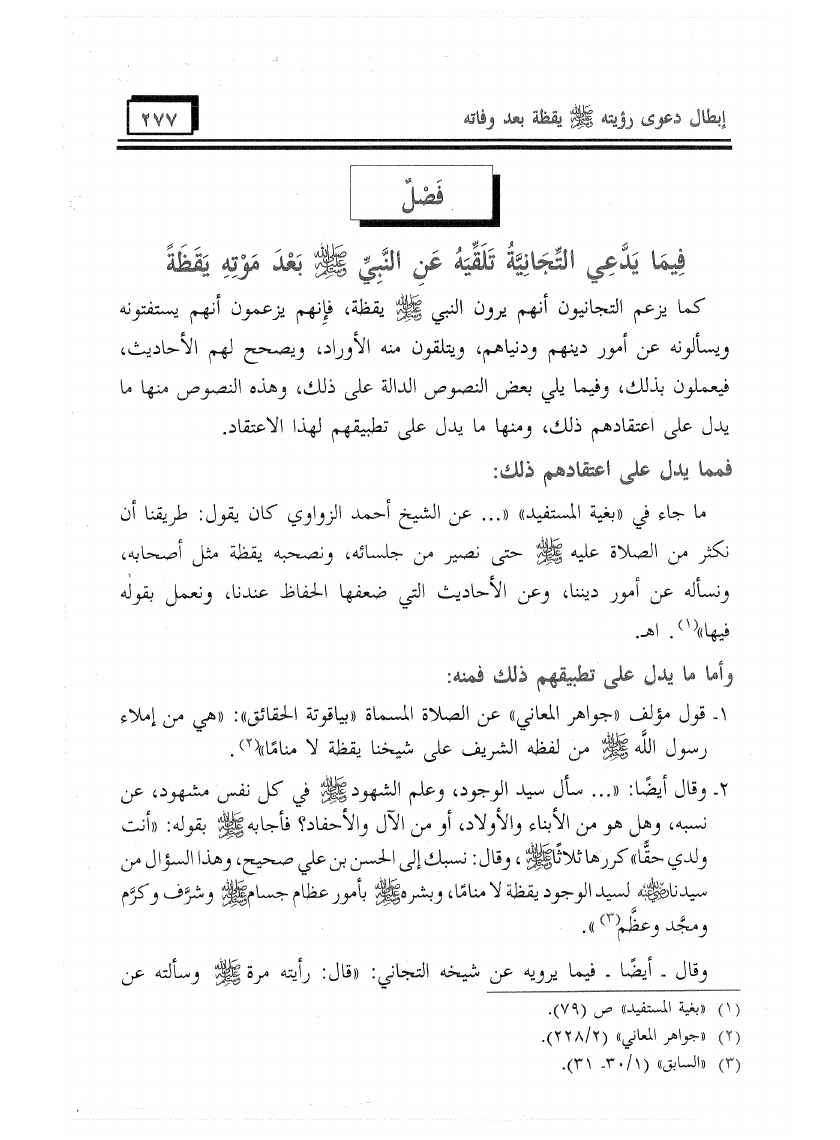 إبطال دعوى رؤيته ﷺ يقظة بعد وفاته
٢٧٧
فَصْلٌ
فِيمَا يَدَّعِي التِّجَانِيَّةُ تَلَقِّيَهُ عَنِ النَّبِيِّ ﷺ بَعْدَ مَوْتِهِ يَقَظَةً
كما يزعم التجانيون أنهم يرون النبي ﷺ يقظة، فإنهم يزعمون أنهم يستفتونه
ويسألونه عن أمور دينهم ودنياهم، ويتلقون منه الأوراد، ويصحح لهم الأحاديث،
فيعملون بذلك، وفيما يلي بعض النصوص الدالة على ذلك، وهذه النصوص منها ما
يدل على اعتقادهم ذلك، ومنها ما يدل على تطبيقهم لهذا الاعتقاد.
فمما يدل على اعتقادهم ذلك:
ما جاء في «بغية المستفيد» «... عن الشيخ أحمد الزواوي كان يقول: طريقنا أن
نكثر من الصلاة عليه ﷺ حتى نصير من جلسائه، ونصحبه يقظة مثل أصحابه،
ونسأله عن أمور ديننا، وعن الأحاديث التي ضعفها الحفاظ عندنا، ونعمل بقوله
فيها»(١). اهـ.
وأما ما يدل على تطبيقهم ذلك فمنه:
١ـ قول مؤلف «جواهر المعاني» عن الصلاة المسماة «بياقوتة الحقائق»: «هي من إملاء
رسول اللَّه ﷺ من لفظه الشريف على شيخنا يقظة لا منامًا»(٢).
٢ـ وقال أيضًا: «... سأل سيد الوجود، وعلم الشهود ﷺ في كل نفس مشهود، عن
نسبه، وهل هو من الأبناء والأولاد، أو من الآل والأحفاد؟ فأجابه ﷺ بقوله: «أنت
ولدي حقًّا» كررها ثلاثًا ﷺ، وقال: نسبك إلى الحسن بن علي صحيح، وهذا السؤال من
سيدنا رضي الله عنه لسيد الوجود يقظة لا منامًا، وبشره ﷺ بأمور عظام جسام ﷺ وشرَّف وكرَّم
ومجَّد وعظَّم(٣)».
وقال ـ أيضًا ـ فيما يرويه عن شيخه التجاني: «قال: رأيته مرة ﷺ وسألته عن
(١) «بغية المستفيد» ص (٧٩).
(٢) «جواهر المعاني» (٢٢٨/٢).
(٣) «السابق» (٣٠/١ـ ٣١).